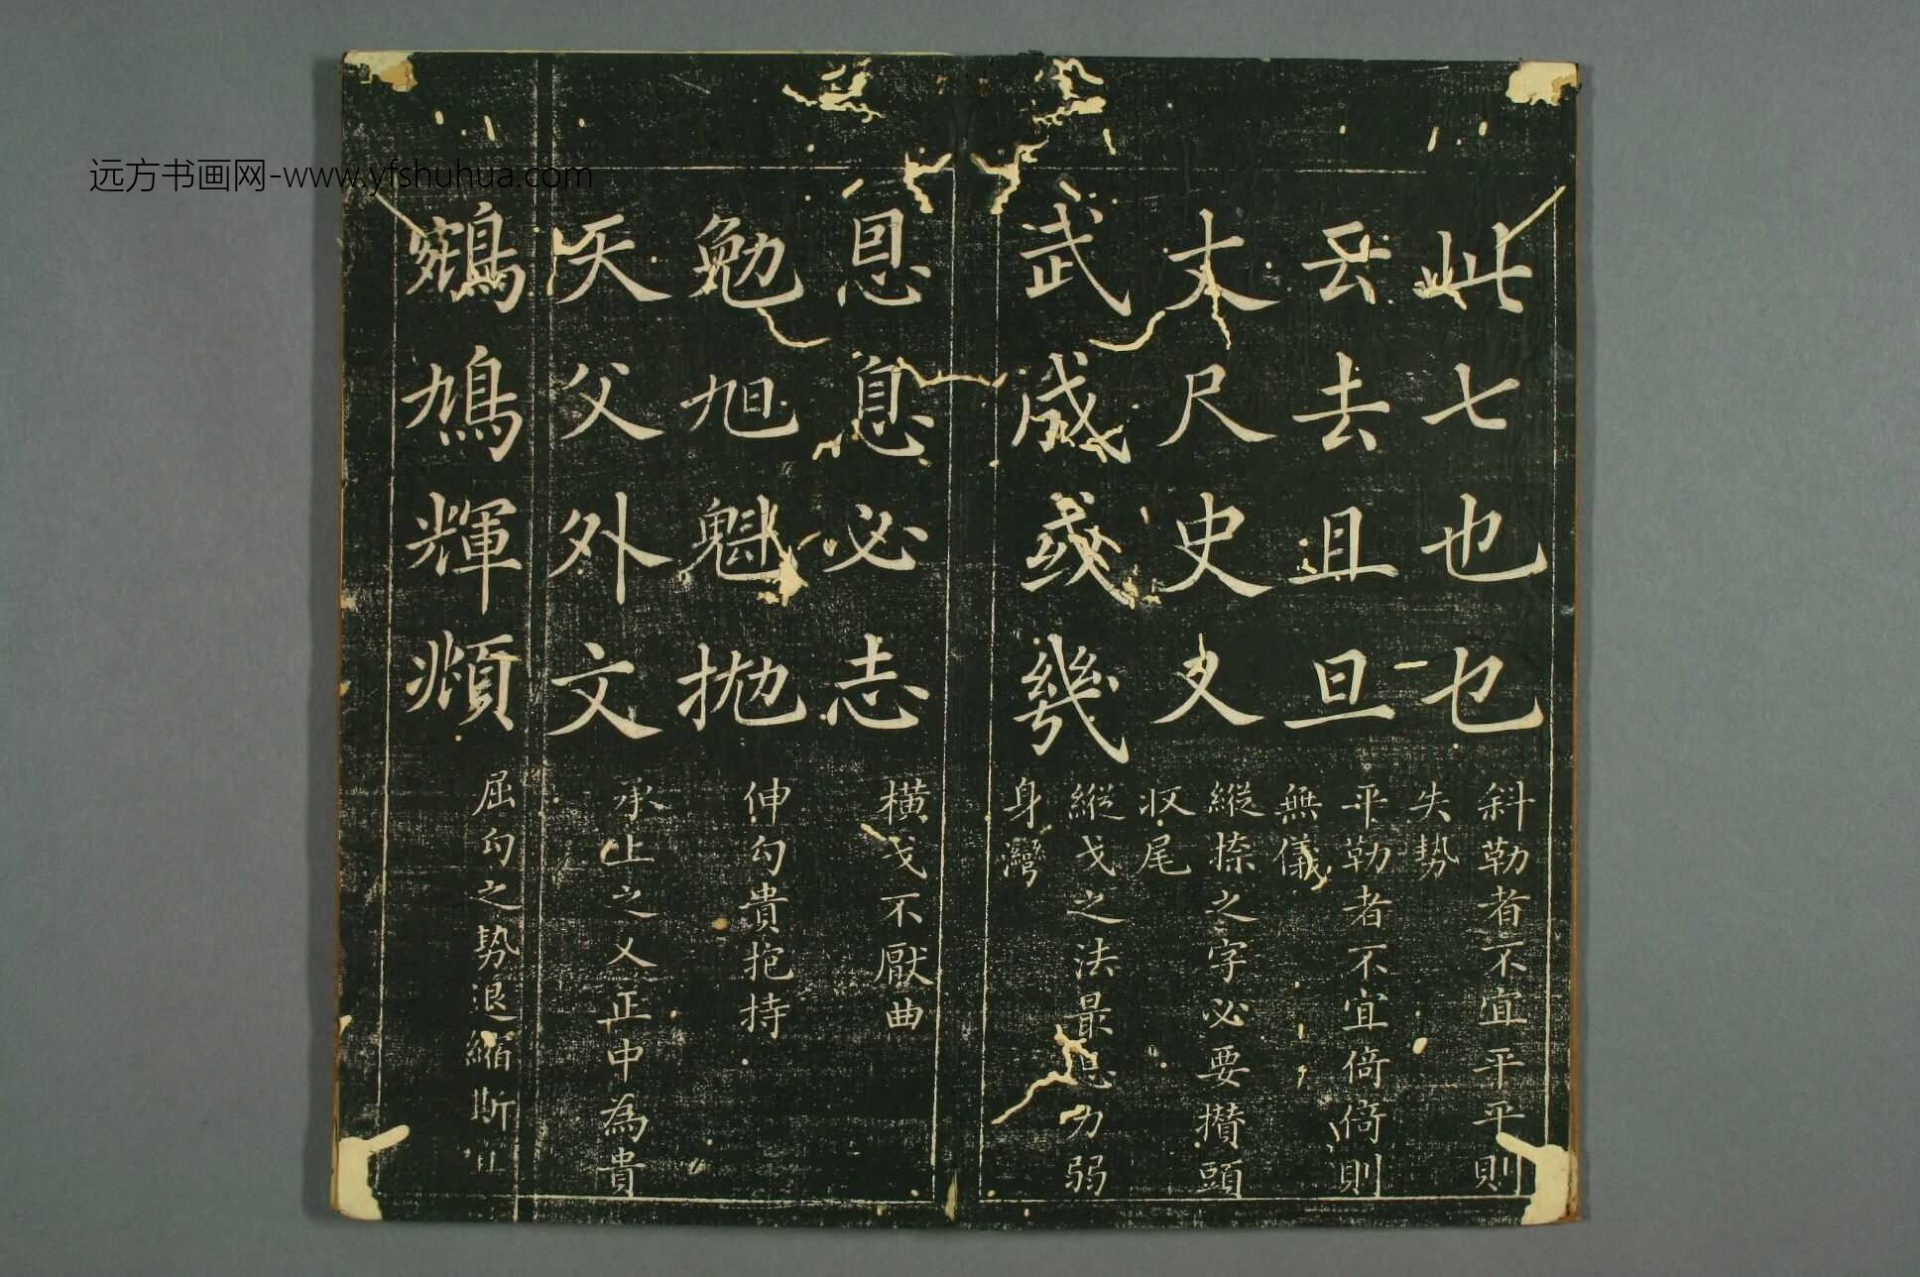 远方书画网-www.yfshuhua.com
此七也乜
斜勒者不宜平平則
失勢
云去且旦
平勒者不宜倚倚則
無儀
丈尺史又
縱捺之字必要攢頭
收尾
武成或幾
縱戈之法最忌力弱
身灣
恩息必志
橫戈不厭曲
勉旭魁拋
伸勾貴抱持
天父外文
承上之乂正中為貴
鵷鳩輝頫
屈勾之勢退縮斯